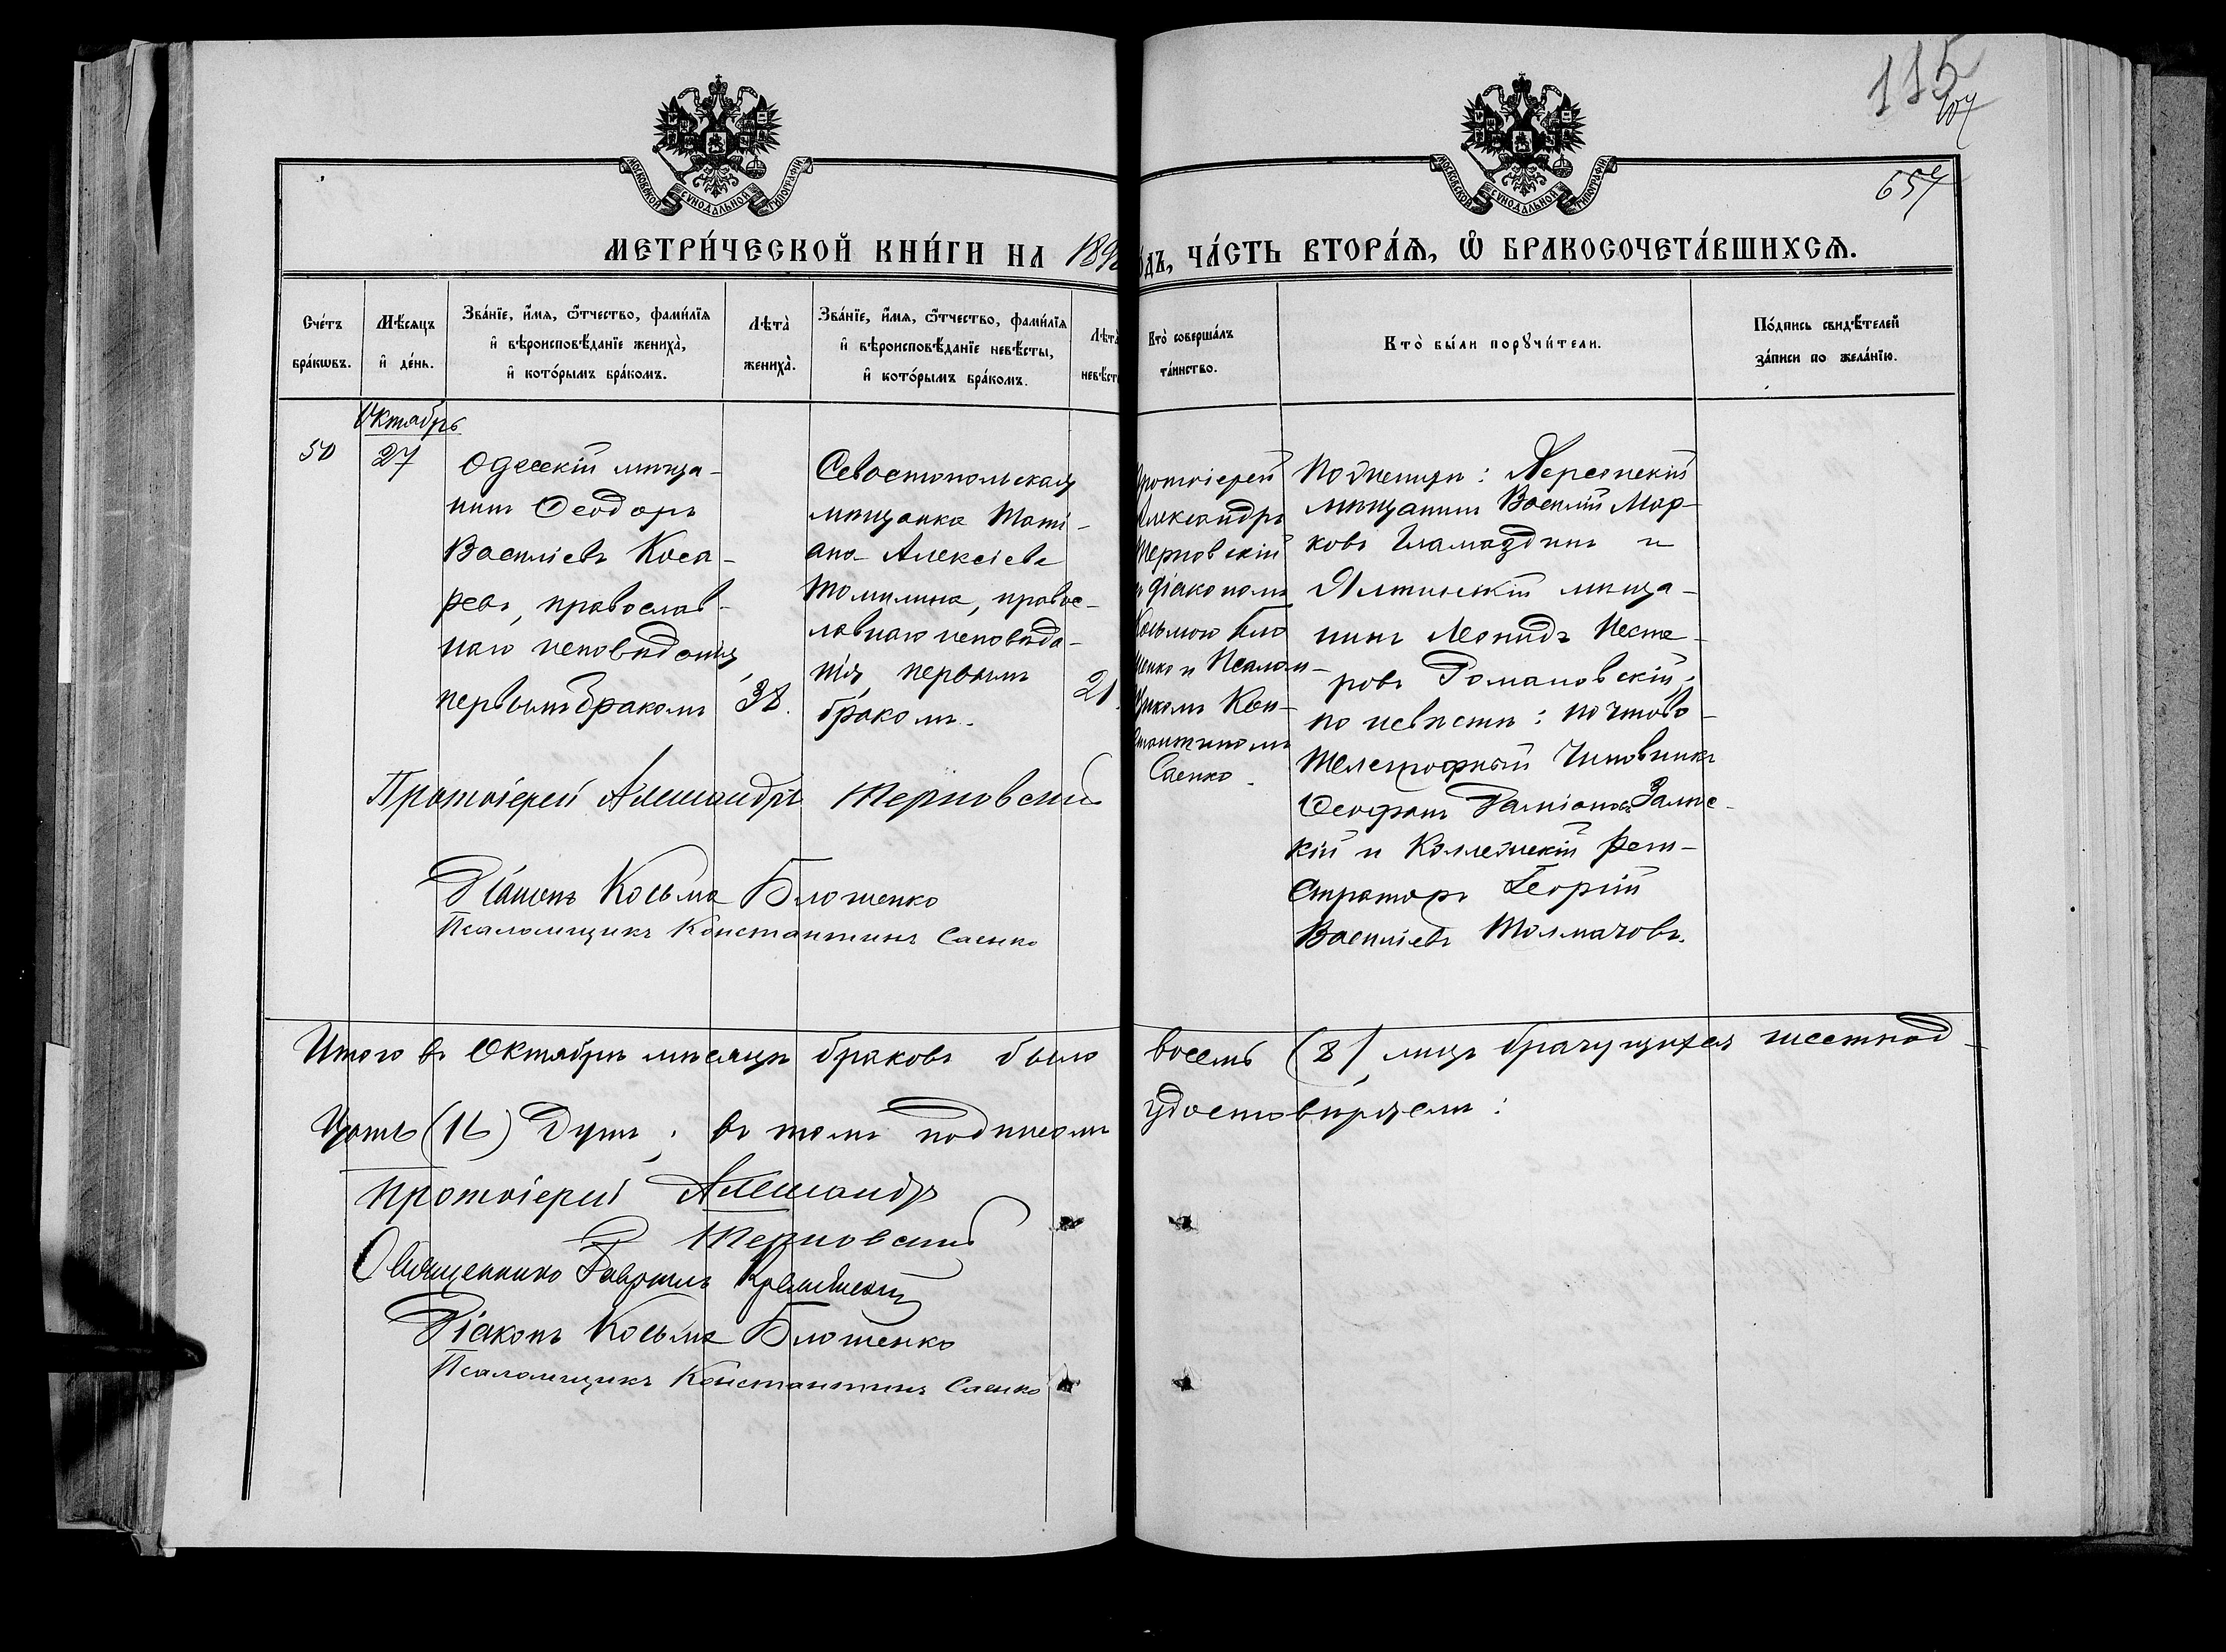 115
107
657
МОСКОВСКОЙ СѴНОДАЛЬНОЙ ТИПОГРАФІИ
МОСКОВСКОЙ СѴНОДАЛЬНОЙ ТИПОГРАФІИ
МЕТРИ́ЧЕСКОЙ КНИ́ГИ НА 189
ОДЪ, ЧА́СТЬ ВТОРА́Ѧ, Ѽ БРАКОСОЧЕТА́ВШИХСѦ.
Сче́тъ бра́кѡвъ.
Мѣ́сяцъ и҆ де́нь.
Зва́нїе, и҆́мѧ, ѻ҆́тчество, фами́лїѧ и҆ вѣроисповѣ́данїе жениха̀, и҆ кото́рымъ бра́комъ.
Лѣта̀ жениха̀.
Зва́нїе, и҆́мѧ, ѻ҆́тчество, фами́лїѧ и҆ вѣроисповѣ́данїе невѣ́сты, и҆ кото́рымъ бра́комъ.
Лѣта̀ невѣ́ст
Кто̀ соверша́лъ та́инство.
Кто̀ бы́ли порꙋчи́тели.
По́дпись свидѣ́телей за́писи по жела́нїю.
Октябрь
50
27
Одесскій мѣща-
нинъ Ѳеодоръ
Василіевъ Коса-
ревъ, православ-
наго исповѣданія,
первымъ бракомъ
38.
Севастопольская
мѣщанка Таті-
ана Алексіева
Томилина, правос-
лавнаго исповѣда-
нія, первымъ
бракомъ.
21.
Протоіерей
Александръ
Терновскій
и діакономъ
Косьмою Бло
шенко и Псалом-
щикомъ Кон-
стантиномъ
Саенко.
По женихѣ:
мѣщанинъ Василій Мар-
ковъ и
Ялтинскій мѣща-
нинъ Леонидъ Несте-
ровъ Романовскій;
по невѣстѣ: почтово-
телеграфный чиновникъ
Даміановъ Залѣс-
кій и Коллежскій Реги-
страторъ Георгій
Василіевъ Толмачовъ.
Протоіерей Александръ Терновскій
Діаконъ Косьма Блошенко
Псаломщикъ Константинъ Саенко
Итого въ Октябрѣ мѣсяцѣ браковъ было
восемь (8), лицъ брачущихся шестнад-
цать (16) душъ; въ томъ подписомъ
удостовѣряемъ:
Протоіерей Александръ
Терновскій
Священникъ Гавріилъ
Діаконъ Косьма Блошенко
Псаломщикъ Константинъ Саенко